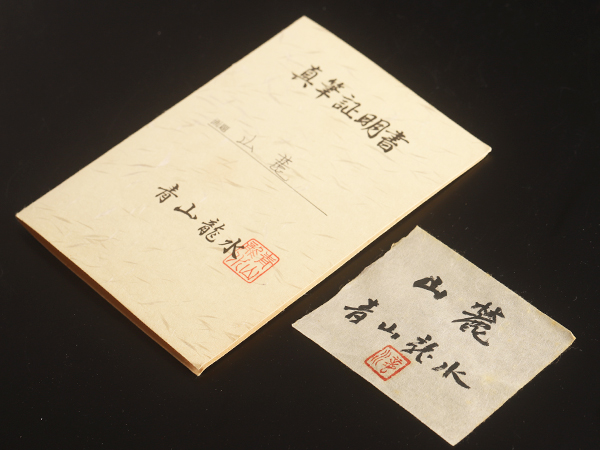 真筆証明書
画題 山麓
青山龍水
山麓
青山龍水